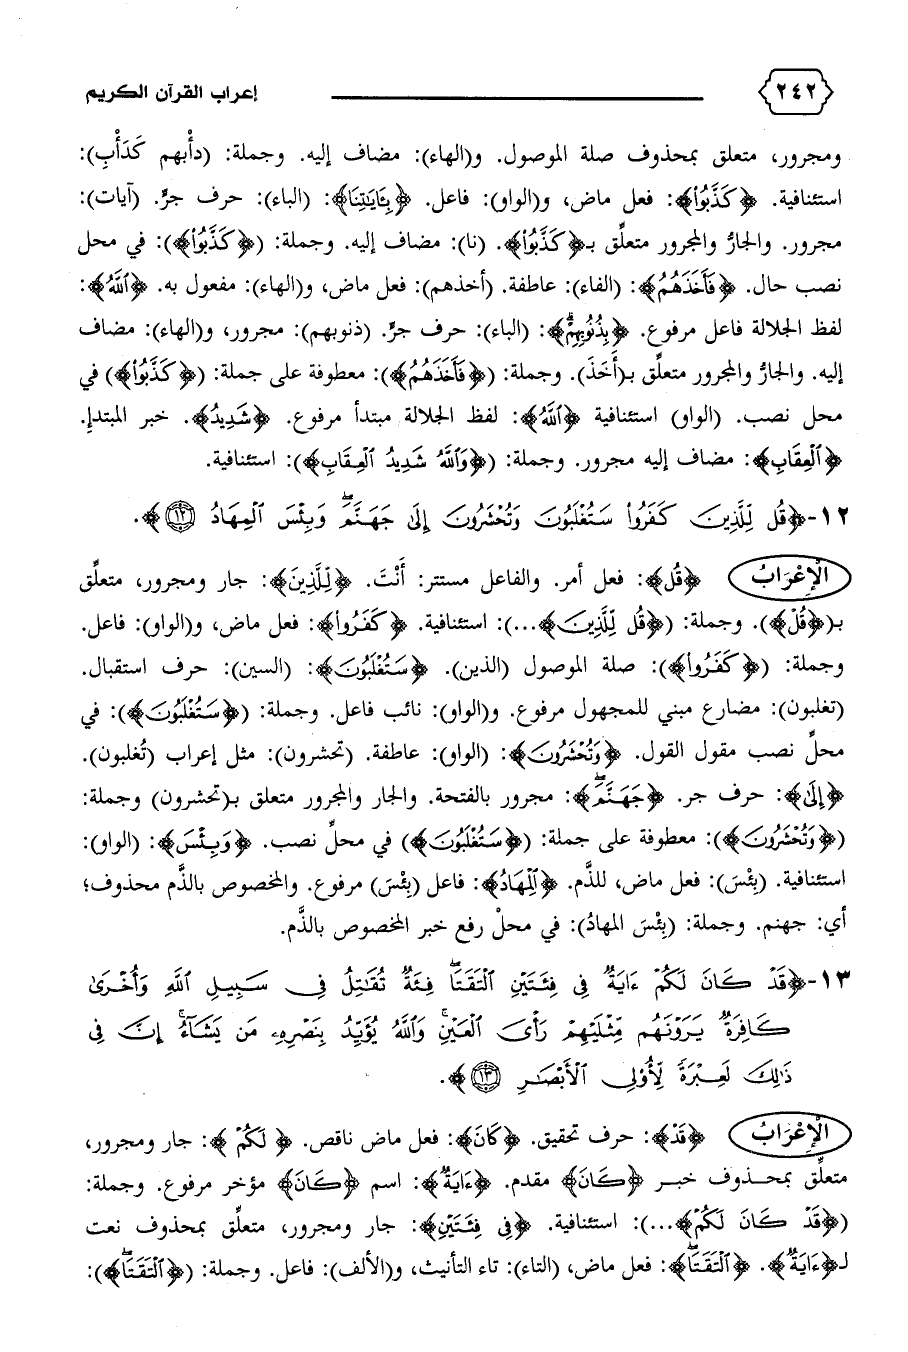 ٢٤٢ إعراب القرآن الكريم
ومجرور، متعلق بمحذوف صلة الموصول. و(الهاء): مضاف إليه. وجملة: (دأْبهم كَدَأْبِ):
استئنافية. ﴿كَذَّبُوا۟﴾: فعل ماض، و(الواو): فاعل. ﴿بِـَٔايَـٰتِنَا﴾: (الباء): حرف جرٍّ. (آيات):
مجرور. والجارُّ والمجرور متعلِّق بـ﴿كَذَّبُوا۟﴾. (نا): مضاف إليه. وجملة: (﴿كَذَّبُوا۟﴾): في محل
نصب حال. ﴿فَأَخَذَهُمُ﴾: (الفاء): عاطفة. (أخذهم): فعل ماض، و(الهاء): مفعول به. ﴿ٱللَّهُ﴾:
لفظ الجلالة فاعل مرفوع. ﴿بِذُنُوبِهِمْ﴾: (الباء): حرف جرٍّ. (ذنوبهم): مجرور، و(الهاء): مضاف
إليه. والجارُّ والمجرور متعلِّق بـ(أَخَذَ). وجملة: (﴿فَأَخَذَهُمُ﴾): معطوفة على جملة: (﴿كَذَّبُوا۟﴾) في
محل نصب. (الواو) استئنافية ﴿ٱللَّهُ﴾: لفظ الجلالة مبتدأ مرفوع. ﴿شَدِيدُ﴾. خبر المبتدإِ.
﴿ٱلْعِقَابِ﴾: مضاف إليه مجرور. وجملة: (﴿وَٱللَّهُ شَدِيدُ ٱلْعِقَابِ﴾): استئنافية.
١٢-﴿قُل لِّلَّذِينَ كَفَرُوا۟ سَتُغْلَبُونَ وَتُحْشَرُونَ إِلَىٰ جَهَنَّمَ ۖ وَبِئْسَ ٱلْمِهَادُ ١٢﴾.
الْإِعْرَابُ ﴿قُل﴾: فعل أمر. والفاعل مستتر: أَنْتَ. ﴿لِّلَّذِينَ﴾: جار ومجرور، متعلِّق
بـ(﴿قُلْ﴾). وجملة: (﴿قُل لِّلَّذِينَ﴾...): استئنافية. ﴿كَفَرُوا۟﴾: فعل ماض، و(الواو): فاعل.
وجملة: (﴿كَفَرُوا۟﴾): صلة الموصول (الذين). ﴿سَتُغْلَبُونَ﴾: (السين): حرف استقبال.
(تغلبون): مضارع مبني للمجهول مرفوع. و(الواو): نائب فاعل. وجملة: (﴿سَتُغْلَبُونَ﴾): في
محلِّ نصب مقول القول. ﴿وَتُحْشَرُونَ﴾: (الواو): عاطفة. (تحشرون): مثل إعراب (تُغلبون).
﴿إِلَىٰ﴾: حرف جر. ﴿جَهَنَّمَ ۖ﴾: مجرور بالفتحة. والجار والمجرور متعلق بـ(تحشرون) وجملة:
(﴿وَتُحْشَرُونَ﴾): معطوفة على جملة: (﴿سَتُغْلَبُونَ﴾) في محلِّ نصب. ﴿وَبِئْسَ﴾: (الواو):
استئنافية. (بِئْسَ): فعل ماض، للذَّم. ﴿ٱلْمِهَادُ﴾: فاعل (بِئْسَ) مرفوع. والمخصوص بالذَّم محذوف؛
أي: جهنم. وجملة: (بِئْسَ المهادُ): في محلْ رفع خبر المخصوص بالذَّم.
١٣-﴿قَدْ كَانَ لَكُمْ ءَايَةٌ فِى فِئَتَيْنِ ٱلْتَقَتَا ۖ فِئَةٌ تُقَـٰتِلُ فِى سَبِيلِ ٱللَّهِ وَأُخْرَىٰ
كَافِرَةٌ يَرَوْنَهُم مِّثْلَيْهِمْ رَأْىَ ٱلْعَيْنِ ۚ وَٱللَّهُ يُؤَيِّدُ بِنَصْرِهِۦ مَن يَشَآءُ ۗ إِنَّ فِى
ذَٰلِكَ لَعِبْرَةً لِّأُو۟لِى ٱلْأَبْصَـٰرِ ١٣﴾.
الْإِعْرَابُ ﴿قَدْ﴾: حرف تحقيق. ﴿كَانَ﴾: فعل ماض ناقص. ﴿لَكُمْ﴾: جار ومجرور،
متعلِّق بمحذوف خبر ﴿كَانَ﴾ مقدم. ﴿ءَايَةٌ﴾: اسم ﴿كَانَ﴾ مؤخر مرفوع. وجملة:
(﴿قَدْ كَانَ لَكُمْ﴾...): استئنافية. ﴿فِى فِئَتَيْنِ﴾: جار ومجرور، متعلِّق بمحذوف نعت
لـ﴿ءَايَةٌ﴾. ﴿ٱلْتَقَتَا ۖ﴾: فعل ماض، (التاء): تاء التأنيث، و(الألف): فاعل. وجملة: (﴿ٱلْتَقَتَا ۖ﴾):